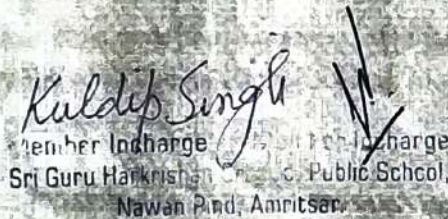 Kuldip Singh
Member Incharge Incharge
Sri Guru Harkrishan Public School,
Nawan Pind, Amritsar.